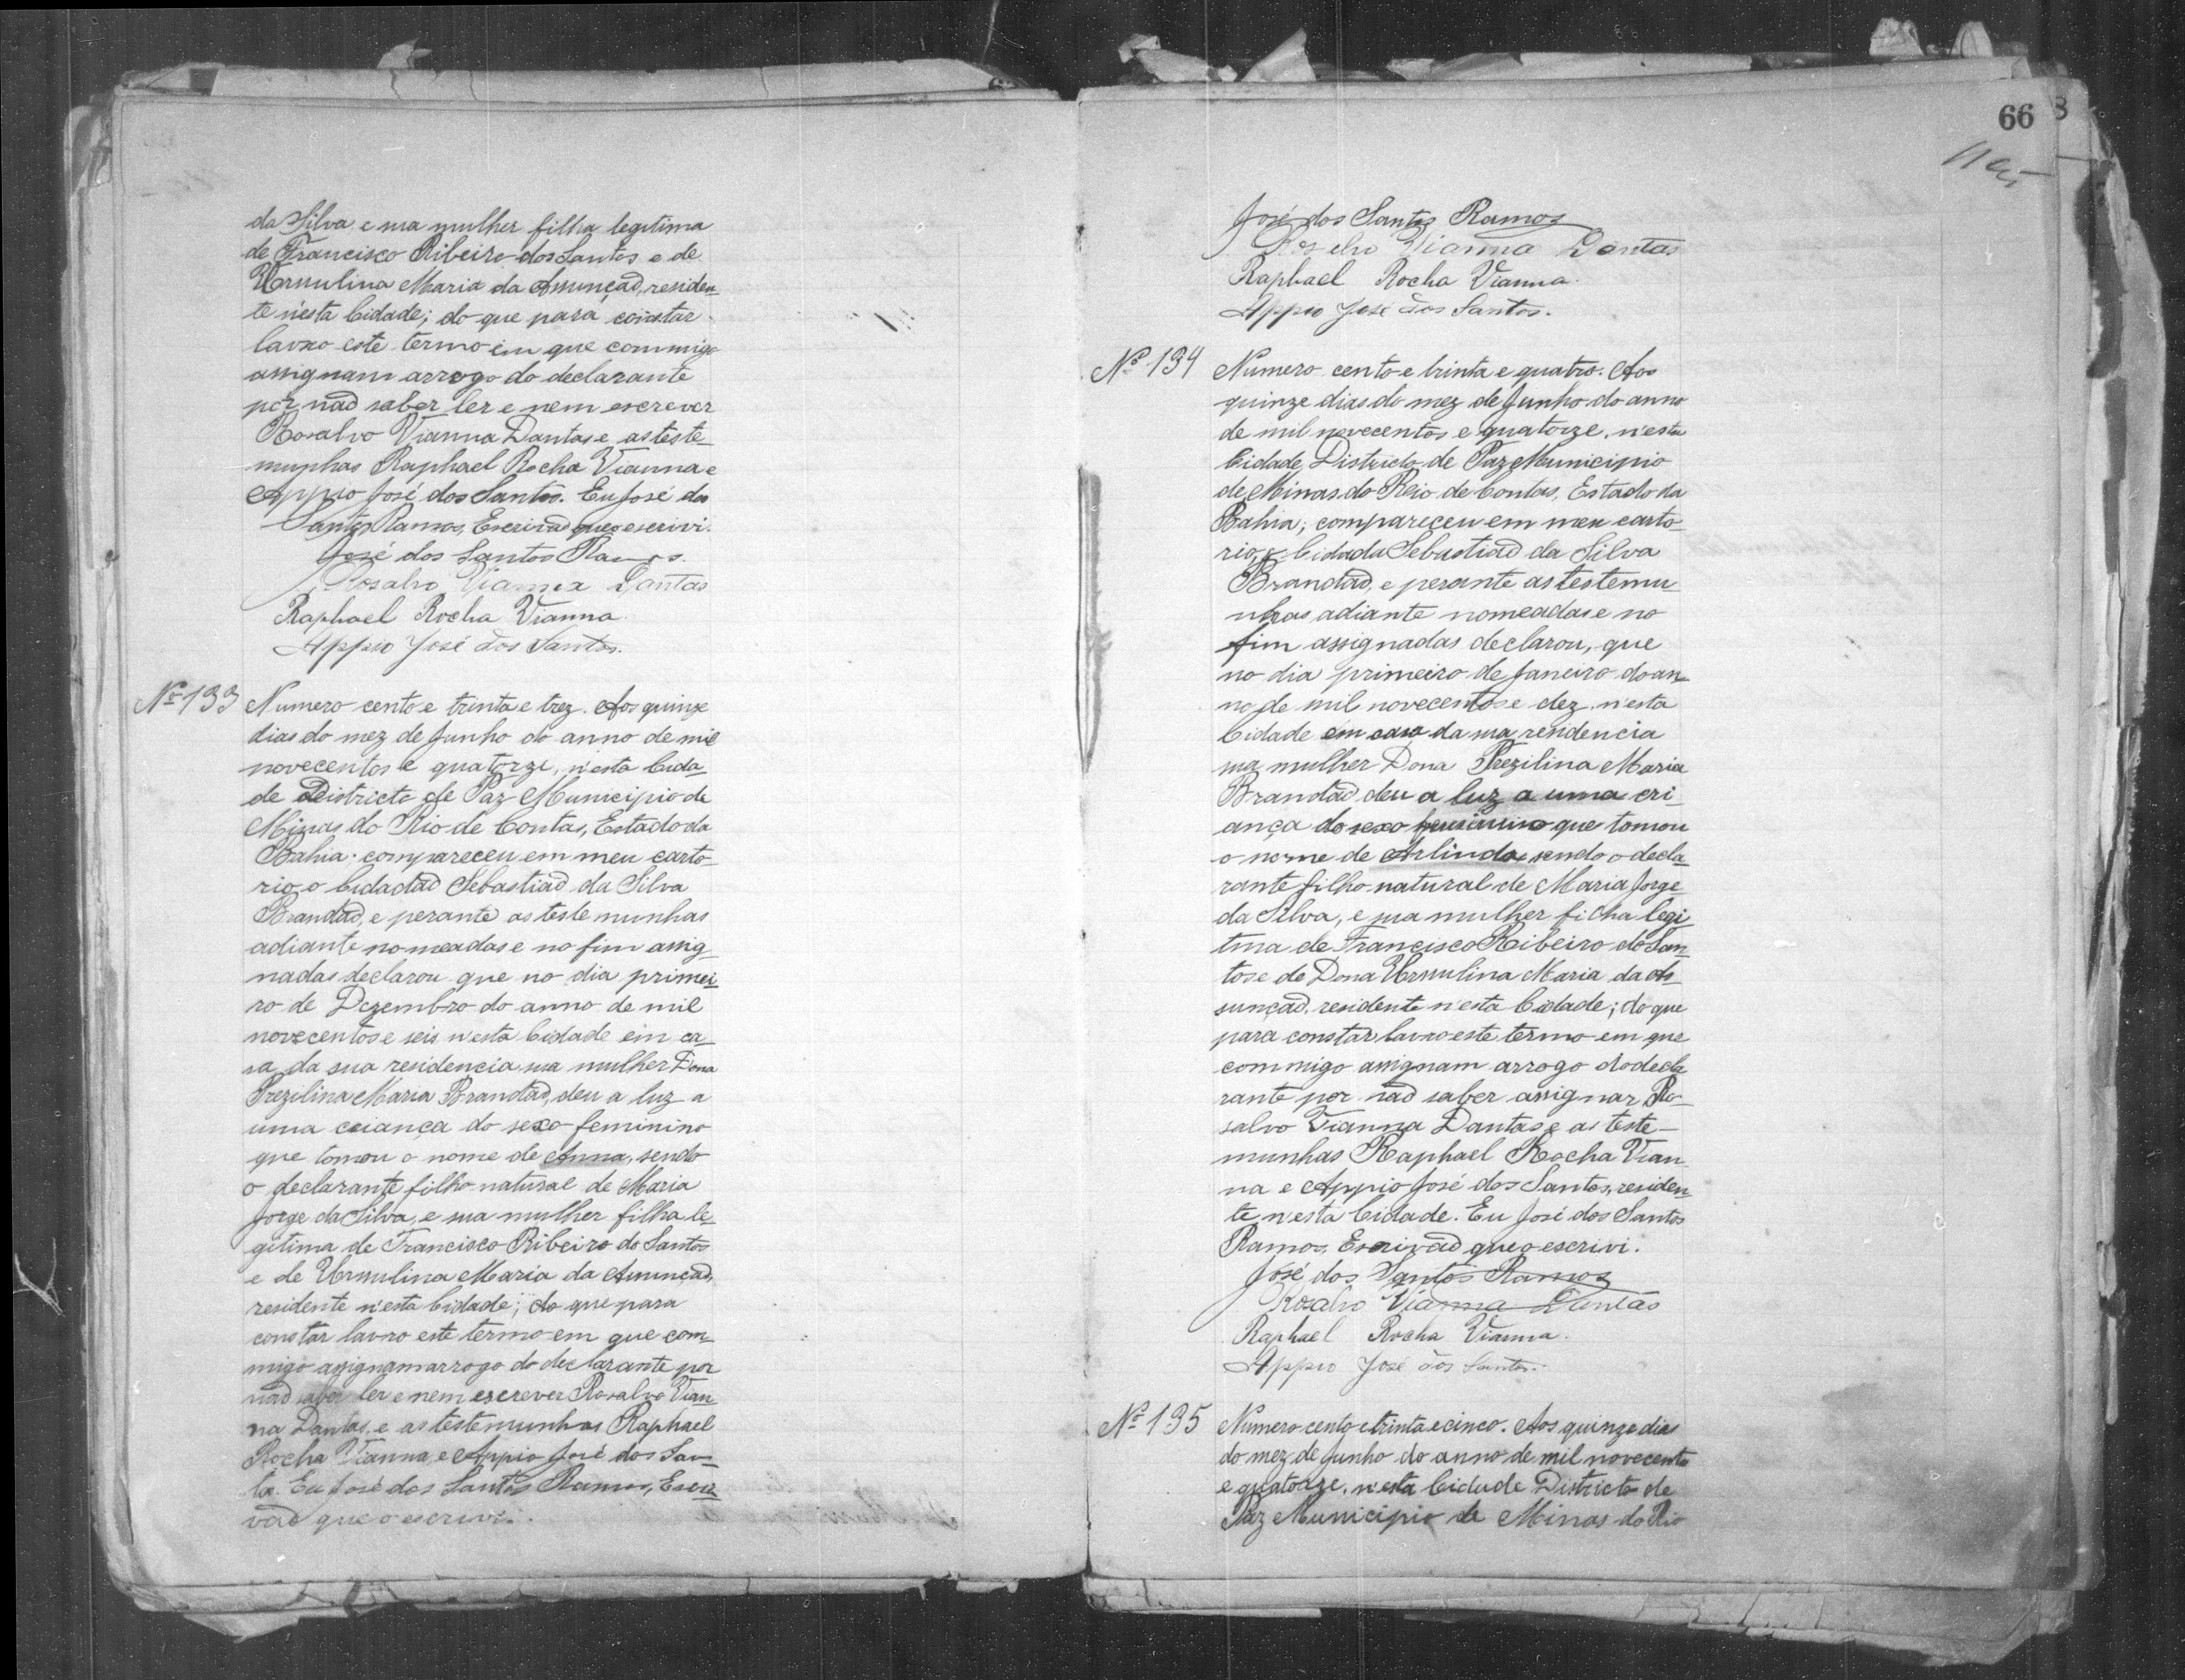 da Silva e sua mulher filha legitima
de Francisco Ribeiro dos Santos e de
Ursulina Maria da Assunçaõ, residen-
te n'esta Cidade; do que para constar
lavro este termo em que commigo
assignam arrogo do declarante
por naõ saber ler e nem escrever
Rosalvo Vianna Dantas e as teste-
munhas Raphael Rocha Vianna e
Appio José dos Santos. Eu José dos
Santos Ramos, Escrivaõ que o escrivi.
José dos Santos Ramos.
Rosalvo Vianna Dantas
Raphael Rocha Vianna.
Appio José dos Santos.
Nº 133 Numero cento e trinta e trez. Aos quinze
dias do mez de Junho do anno de mil
novecentos e quatorze, n'esta Cida-
de Districto de Paz Municipio de
Minas do Rio de Contas, Estado da
Bahia; compareceu em meu carto-
rio o Cidadaõ Sebastiaõ da Silva
Brandaõ, e perante as testemunhas
adiante nomeadas e no fim assig-
nadas declarou que no dia primei-
ro de Dezembro do anno de mil
novecentos e seis n'esta Cidade em ca-
sa da sua residencia sua mulher Dona
Prezilina Maria Brandaõ, deu a luz a
uma criança do sexo feminino
que tomou o nome de Anna, sendo
o declarante filho natural de Maria
Jorge da Silva, e sua mulher filha le-
gitima de Francisco Ribeiro do Santos
e de Ursulina Maria da Assunçaõ,
residente n'esta Cidade; do que para
constar lavro este termo em que com-
migo assignam arrogo do declarante por
naõ saber ler e nem escrever Rosalvo Vian-
na Dantas, e as testemunhas Raphael
Rocha Vianna, e Appio José dos San-
tos. Eu José dos Santos Ramos, Escri-
vaõ que o escrivi.
66
José dos Santos Ramos
Rosalvo Vianna Dantas
Raphael Rocha Vianna.
Appio José dos Santos.
Nº 134 Numero cento e trinta e quatro. Aos
quinze dias do mez de Junho do anno
de mil novecentos e quatorze, n'esta
Cidade, Districto de Paz Municipio
de Minas do Rio de Contas, Estado da
Bahia; compareceu em meu carto-
rio, o Cidadaõ Sebastiaõ da Silva
Brandaõ, e perante as testemu-
nhas adiante nomeadas e no
fim assignadas declarou, que
no dia primeiro de Janeiro do an-
no de mil novecentos e dez, n'esta
Cidade em casa da sua residencia
sua mulher Dona Prezilina Maria
Brandaõ deu a luz a uma cri-
ança do sexo que tomou
o nome de sendo o decla-
rante filho natural de Maria Jorge
da Silva, e sua mulher filha legi-
tma de Francisco Ribeiro do San-
tos e de Dona Ursulina Maria da As-
sunçaõ, residente n'esta Cidade; do que
para constar lavro este termo em que
commigo assignam arrogo do decla-
rante por naõ saber assignar Ro-
salvo Vianna Dantas e as teste-
munhas Raphael Rocha Vian-
na e Appio José dos Santos, residen-
te n'esta Cidade. Eu José dos Santos
Ramos, Escrivaõ que o escrivi.
José dos Santos Ramos
Rosalvo Vianna Dantas
Raphael Rocha Vianna.
Appio José dos Santos.
Nº 135 Numero cento e trinta e cinco. Aos quinze dias
do mez de Junho do anno de mil novecento
e quatorze, n'esta Cidade Districto de
Paz Municipio de Minas do Rio